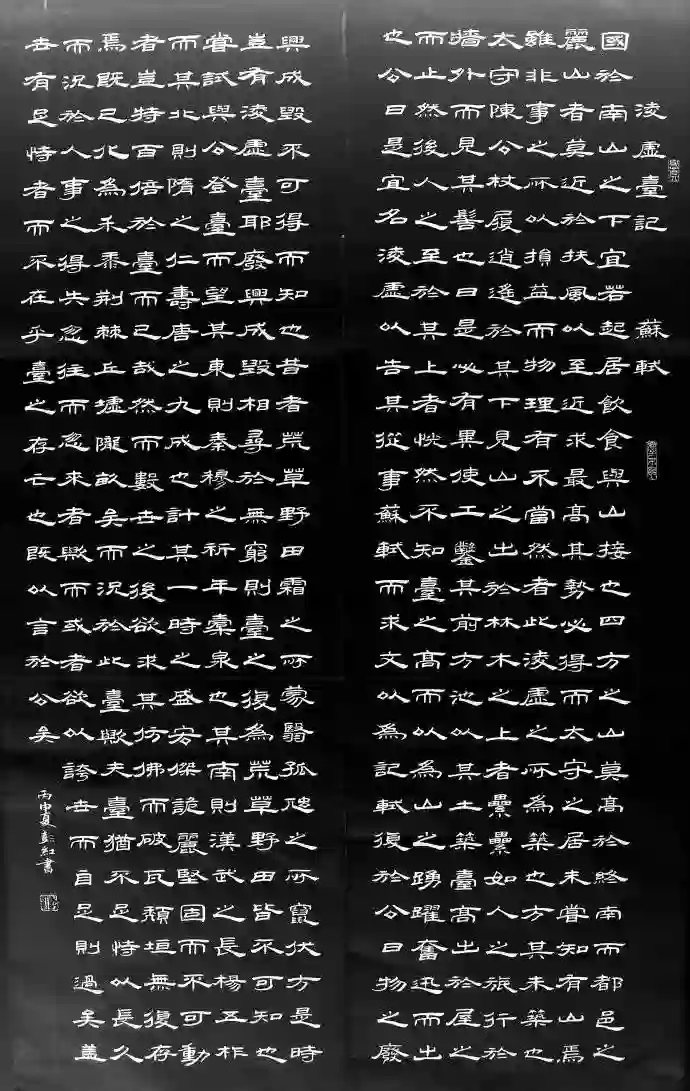 淩虛臺記 蘇軾
國於南山之下宜若起居飲食與山接也四方之山莫高於終南而都邑之
麗山者莫近於扶風以至近求最高其勢必得而太守之居未嘗知有山焉
雖非事之所以損益而物理有不當然者此淩虛之所為築也方其未築也
太守陳公杖履逍遙於其下見山之出於林木之上者纍纍如人之旅行於
牆外而見其髻也曰是必有異使工鑿其前方池以其土築臺高出於屋之
而止然後人之至於其上者恍然不知臺之高而以為山之踴躍奮迅而出
也公曰是宜名淩虛以告其從事蘇軾而求文以為記軾復於公曰物之廢
興成毀不可得而知也昔者荒草野田霜之所蒙翳孤虺之所竄伏方是時
豈有淩虛臺耶廢興成毀相尋於無窮則臺之復為荒草野田皆不可知也
嘗試與公登臺而望其東則秦穆之祈年橐泉也其南則漢武之長楊五柞
而其北則隋之仁壽唐之九成也計其一時之盛宏傑詭麗堅固而不可動
者豈特百倍於臺而已哉然而數世之後欲求其彷彿而破瓦頹垣無復存
焉既已化為禾黍荊棘丘墟隴畝矣而況於此臺歟夫臺猶不足恃以長久
而況於人事之得失忽往而忽來者歟而或者欲以誇世而自足則過矣蓋
世有足恃者而不在乎臺之存亡也既以言於公矣
丙申夏彭紅書